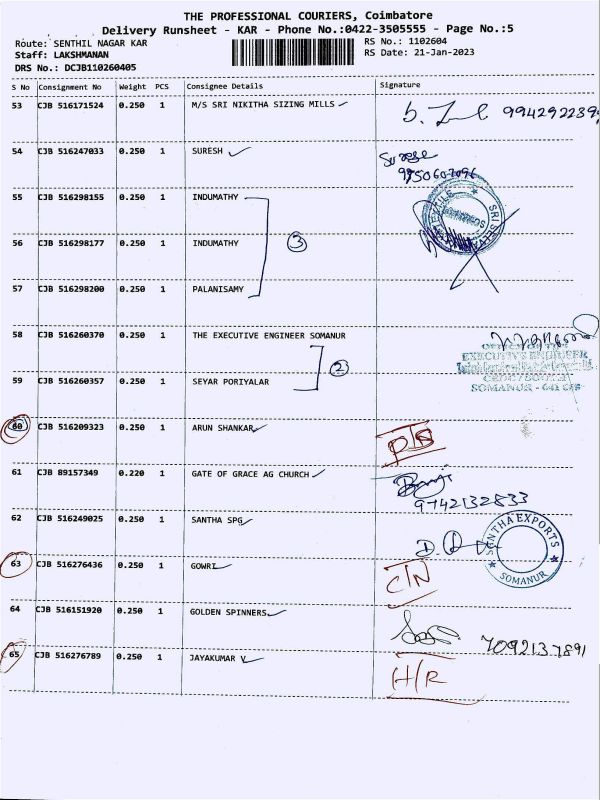 THE PROFESSIONAL COURIERS, Coimbatore
Delivery Runsheet - KAR - Phone No.:0422-3505555 - Page No.:5
Route: SENTHIL NAGAR KAR
RS No.: 1102604
Staff: LAKSHMANAN
RS Date: 21-Jan-2023
DRS No.: DCJB110260405
S No Consignment No Weight PCS Consignee Details Signature
53 CJB 516171524 0.250 1 M/S SRI NIKITHA SIZING MILLS
54 CJB 516247033 0.250 1 SURESH
55 CJB 516298155 0.250 1 INDUMATHY
56 CJB 516298177 0.250 1 INDUMATHY 3
57 CJB 516298200 0.250 1 PALANISAMY
58 CJB 516260370 0.250 1 THE EXECUTIVE ENGINEER SOMANUR
EXECUTIVE ENGINEER
59 CJB 516260357 0.250 1 SEYAR PORIYALAR 2
60 CJB 516209323 0.250 1 ARUN SHANKAR
61 CJB 89157349 0.220 1 GATE OF GRACE AG CHURCH
9742132833
62 CJB 516249025 0.250 1 SANTHA SPG
SANTHA EXPORTS
SOMANUR
63 CJB 516276436 0.250 1 GOWRI C/N
64 CJB 516151920 0.250 1 GOLDEN SPINNERS
7092137891
65 CJB 516276789 0.250 1 JAYAKUMAR V H/R